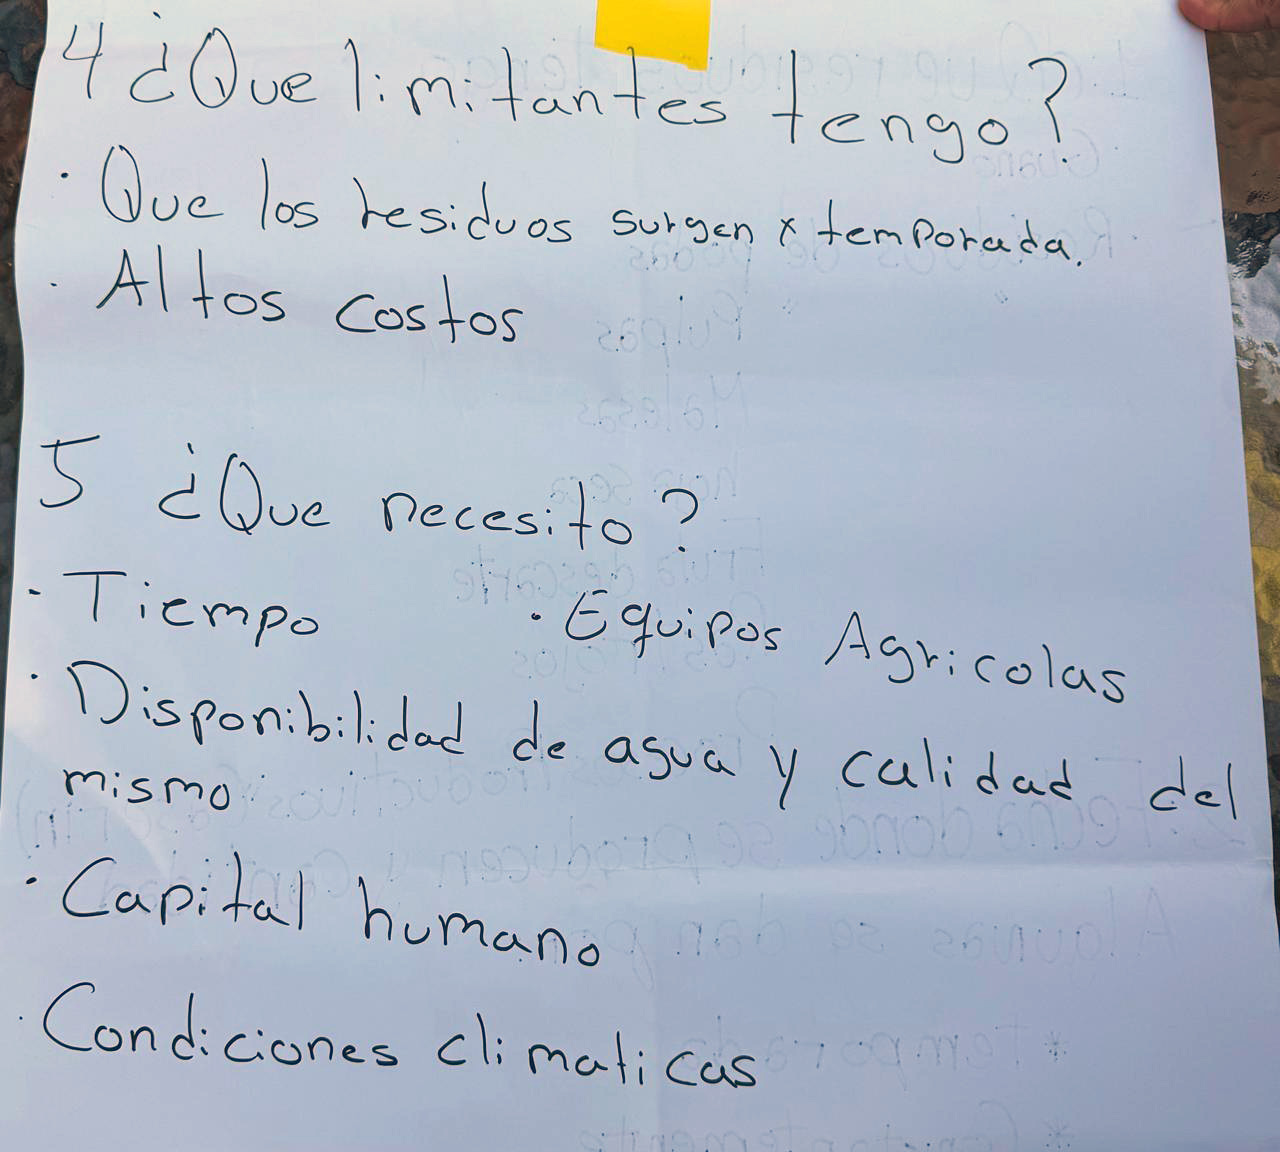 4 ¿Que limitantes tengo?
· Que los residuos surgen x temporada.
· Altos costos
5 ¿Que necesito?
· Tiempo · Equipos Agricolas
· Disponibilidad de agua y calidad del
mismo
· Capital humano
· Condiciones climaticas